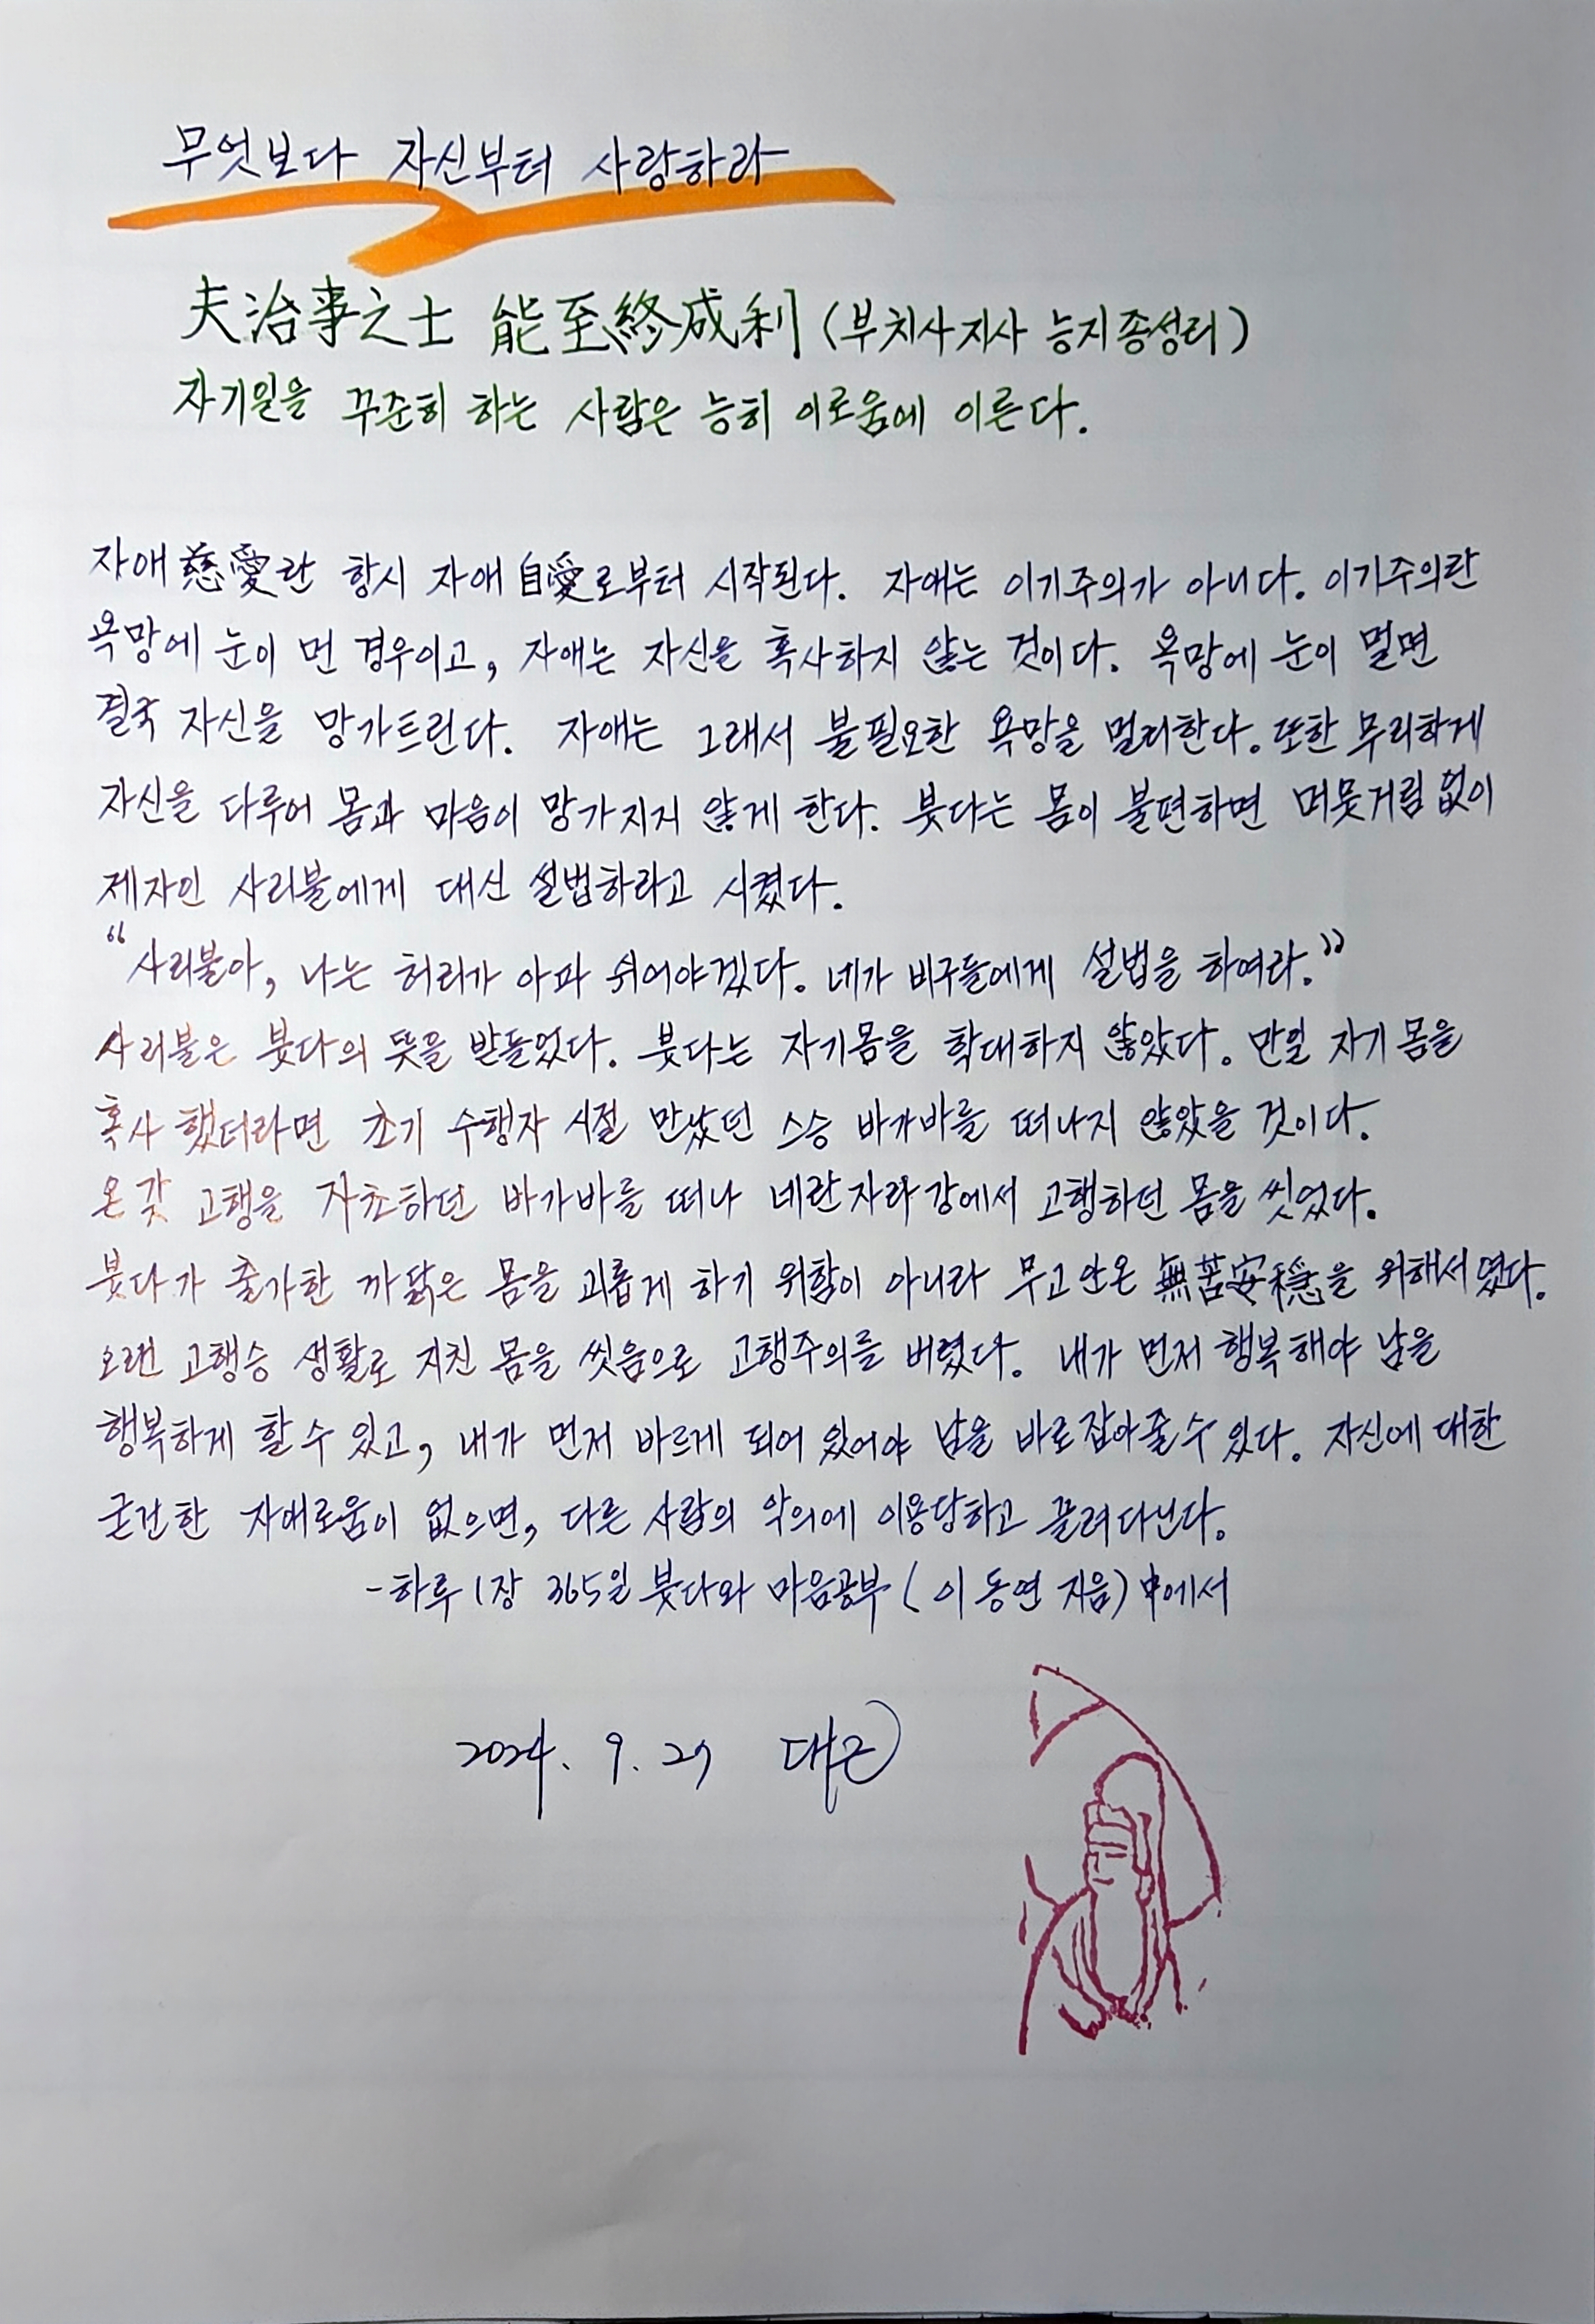 무엇보다 자신부터 사랑하라
夫治事之士 能至終成利 (부치사지사 능지종성리)
자기일을 꾸준히 하는 사람은 능히 이로움에 이른다.
자애 慈愛란 항시 자애 自愛로부터 시작된다. 자애는 이기주의가 아니다. 이기주의란
욕망에 눈이 먼 경우이고, 자애는 자신을 혹사하지 않는 것이다. 욕망에 눈이 멀면
결국 자신을 망가트린다. 자애는 그래서 불필요한 욕망을 멀리한다. 또한 무리하게
자신을 다루어 몸과 마음이 망가지지 않게 한다. 붓다는 몸이 불편하면 머뭇거림 없이
제자인 사리불에게 대신 설법하라고 시켰다.
"사리불아, 나는 허리가 아파 쉬어야겠다. 네가 비구들에게 설법을 하여라."
사리불은 붓다의 뜻을 받들었다. 붓다는 자기몸을 학대하지 않았다. 만일 자기 몸을
혹사 했더라면 초기 수행자 시절 만났던 스승 바가바를 떠나지 않았을 것이다.
온갖 고행을 자초하던 바가바를 떠나 네란자라강에서 고행하던 몸을 씻었다.
붓다가 출가한 까닭은 몸을 괴롭게 하기 위함이 아니라 무고안온 無苦安穩을 위해서였다.
오랜 고행승 생활로 지친 몸을 씻음으로 고행주의를 버렸다. 내가 먼저 행복해야 남을
행복하게 할 수 있고, 내가 먼저 바르게 되어 있어야 남을 바로잡아줄 수 있다. 자신에 대한
굳건한 자애로움이 없으면, 다른 사람의 악의에 이용당하고 끌려다닌다.
-하루 1장 365일 붓다와 마음공부 (이동연 지음) 中에서
2024. 9. 29 대근